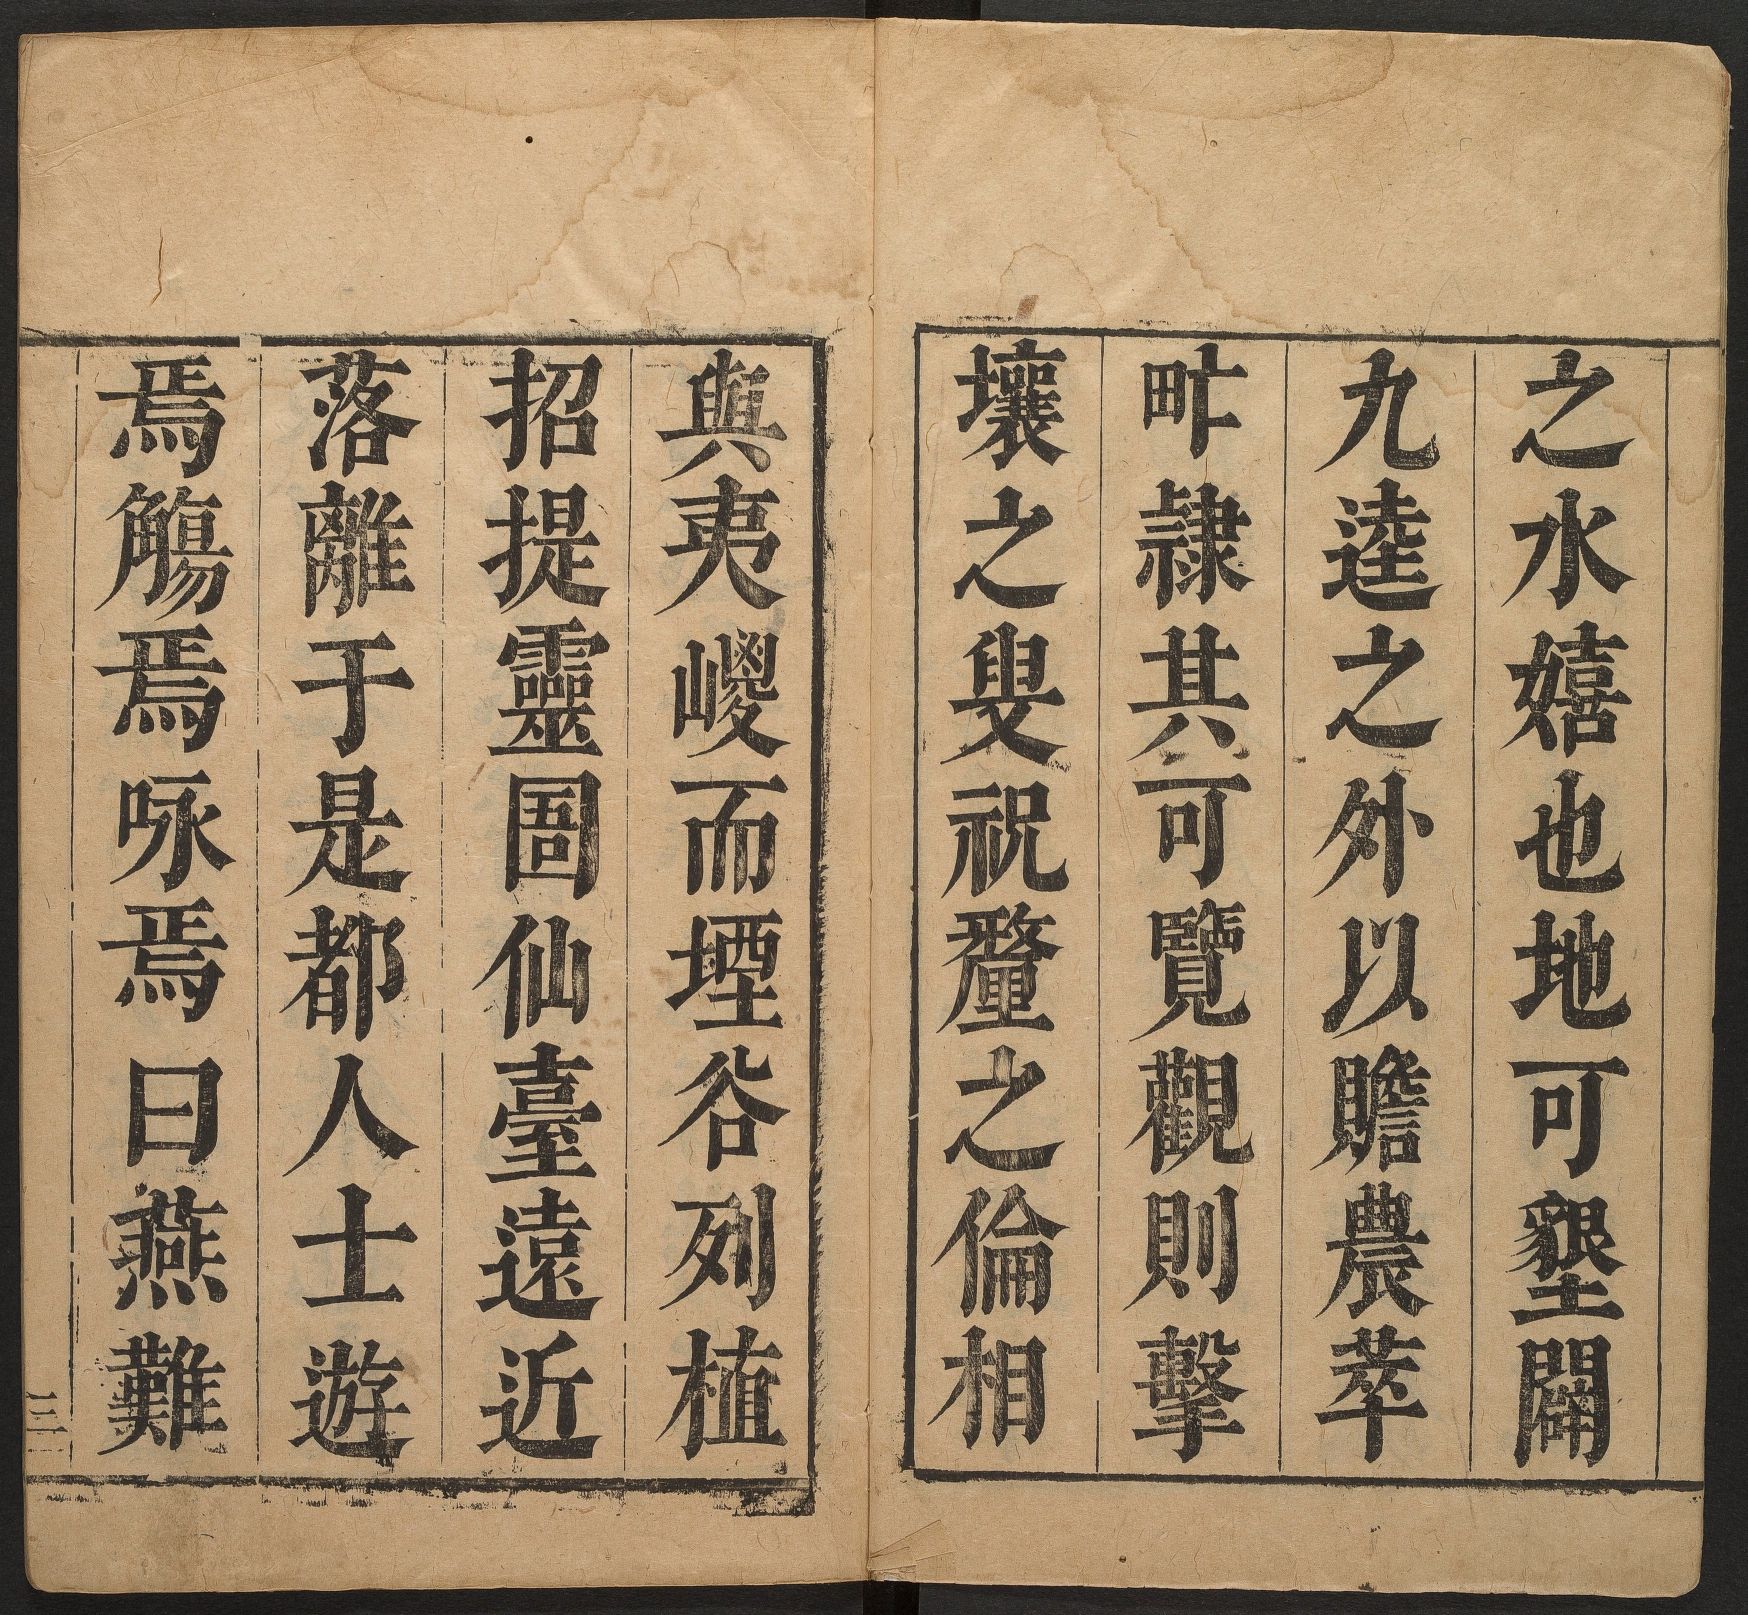 之水嬉也地可墾闢
九逵之外以贍農萃
甿隷其可覽觀則擊
壤之叟祝釐之倫相
與夷嵕而堙谷列植
招提靈圄仙臺遠近
落離于是都人士遊
焉觴焉咏焉曰燕難